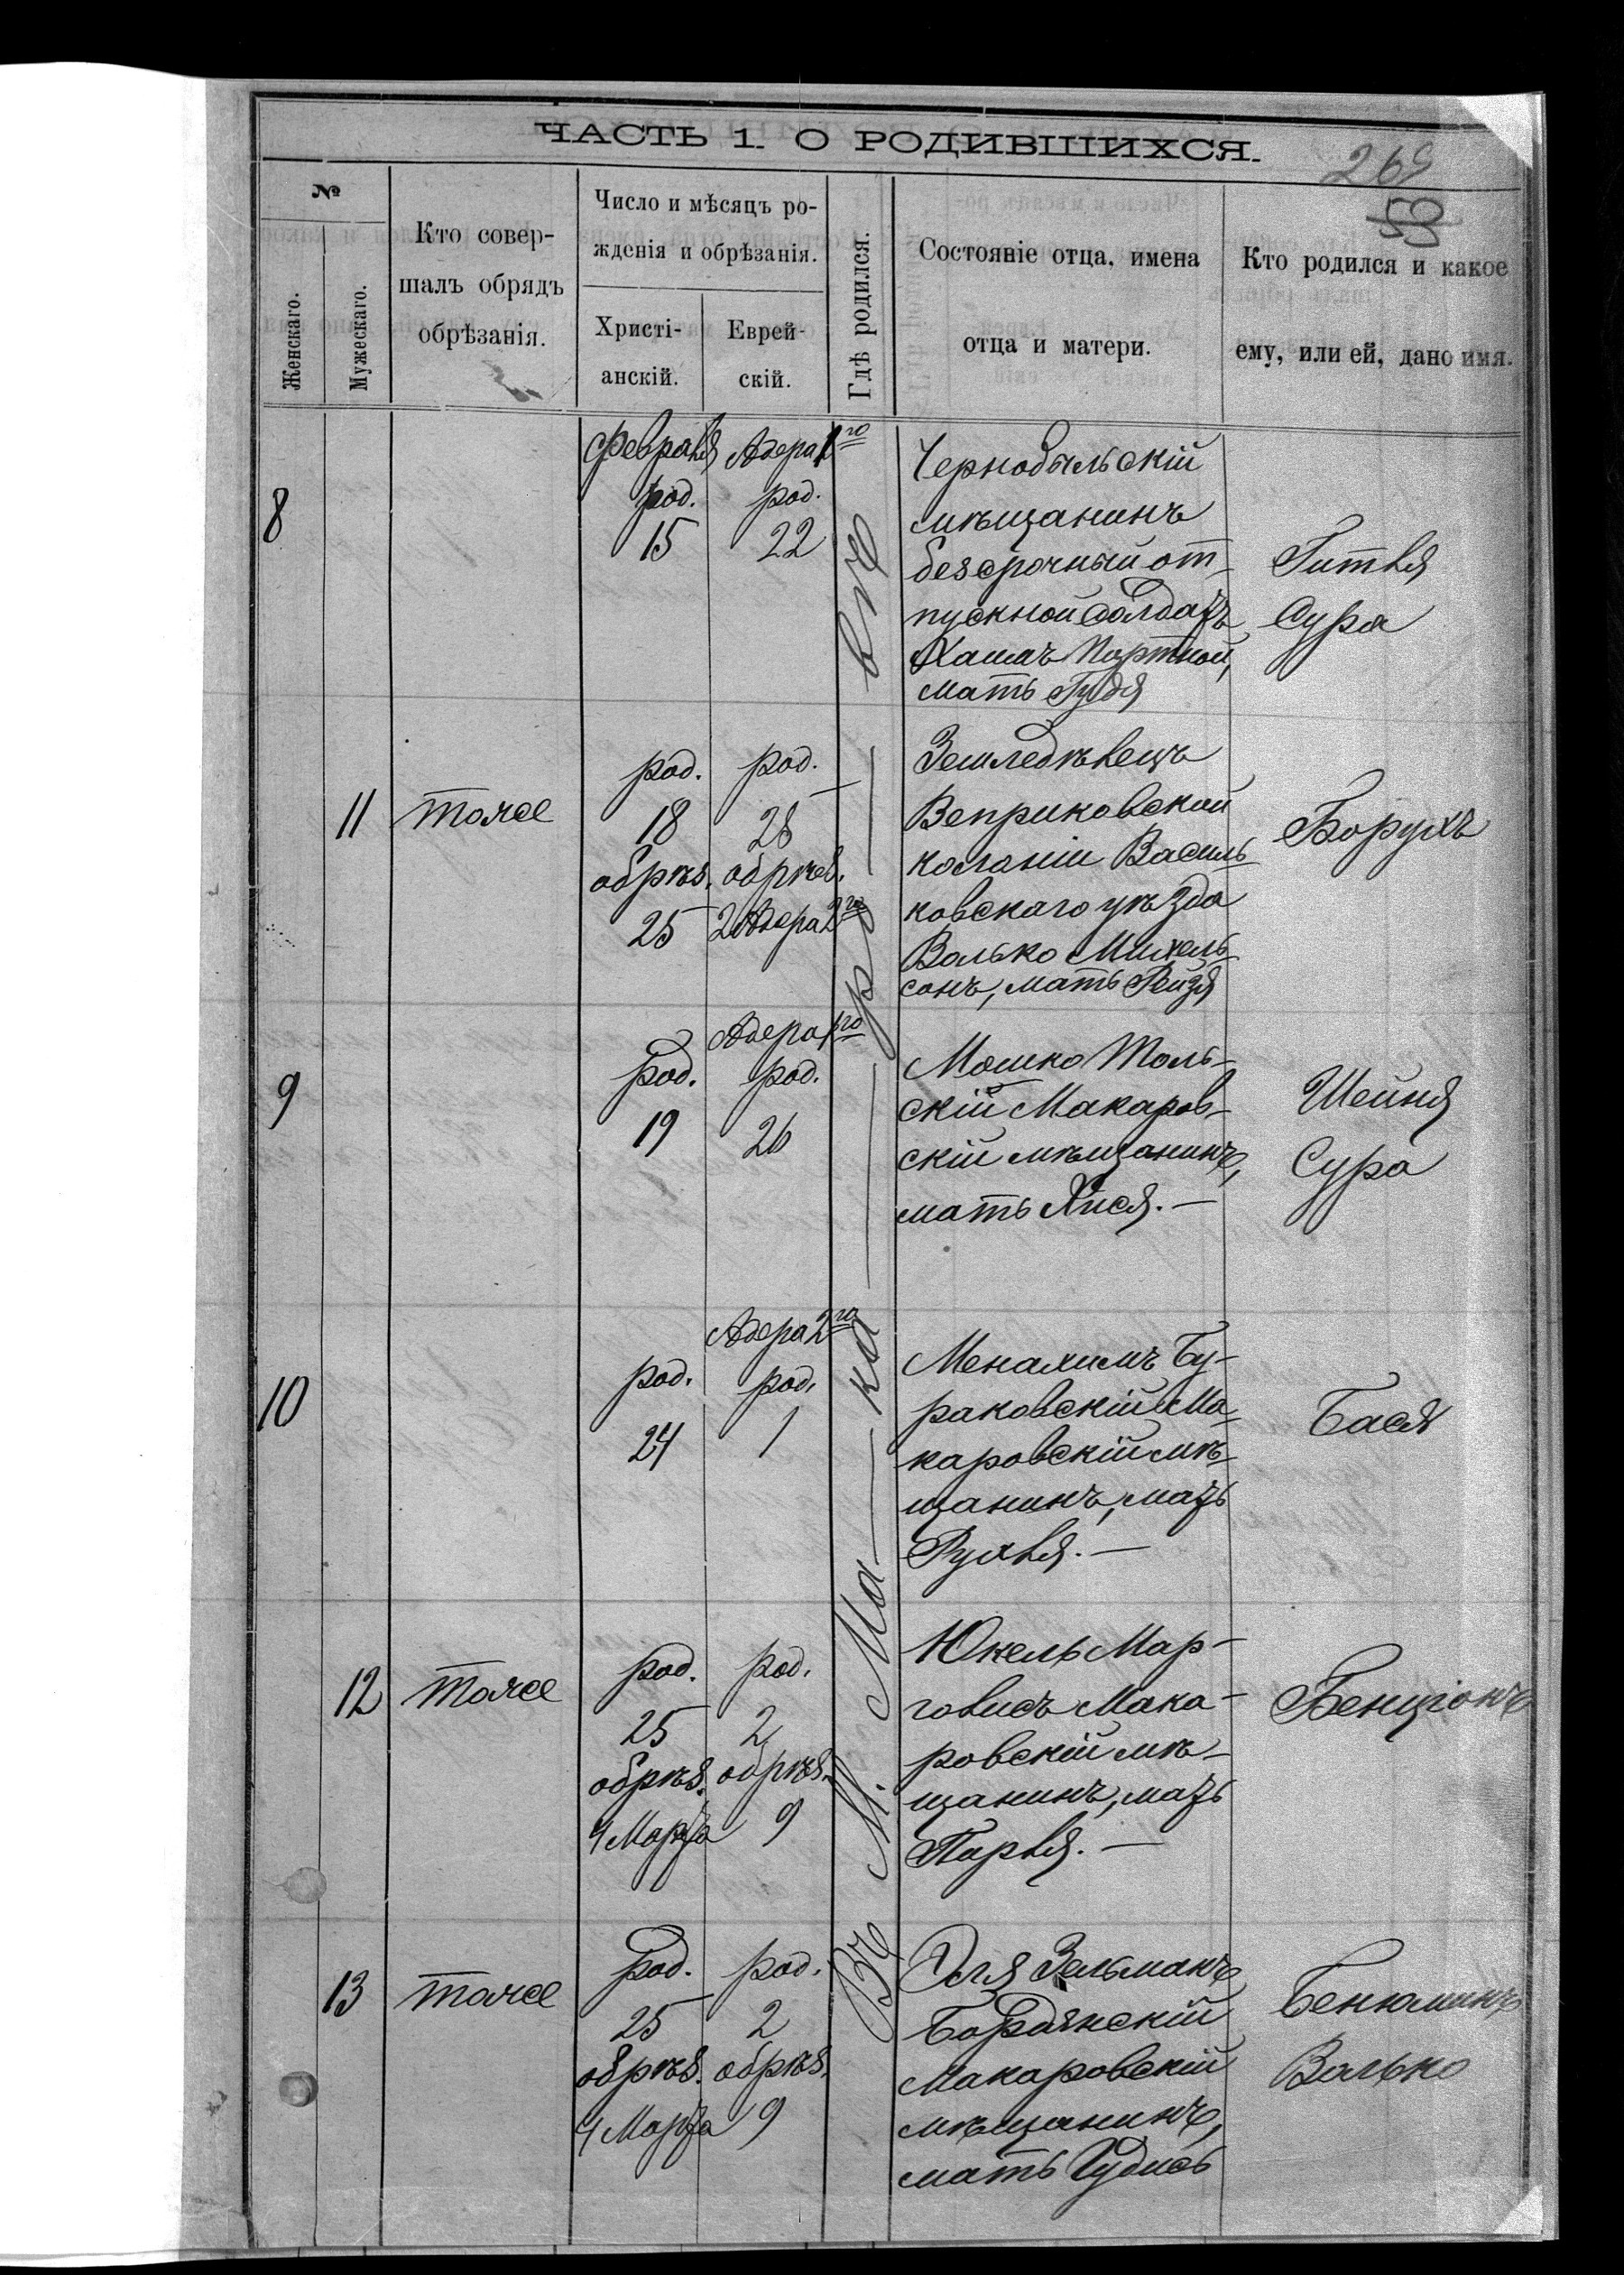 ЧАСТЬ 1. О РОДИВШИХСЯ.
269
59
№
Женскаго.
Мужескаго.
Кто совер-
шалъ обрядъ
обрѣзанія.
Число и мѣсяцъ ро-
жденія и обрѣзанія.
Христі-
анскій.
Еврей-
скій.
Гдѣ родился.
Состояніе отца, имена
отца и матери.
Кто родился и какое
ему, или ей, дано имя.
Въ М. Ма-ка-ро-вѣ
8
Февраля
род.
15
Адера 1го
род.
22
Чернобыльскій
мѣщанинъ
безсрочный от-
пускной солдатъ
Хаимъ Портной,
мать Гудя
Гитля
Сура
11
тоже
род.
18
обрѣз.
25
род.
28
обрѣз.
2 Адера 2го
Земледѣлецъ
Веприковской
колоніи Василь-
ковскаго уѣзда
Волько Михель-
сонъ, мать Рейзя
Борухъ
9
род.
19
Адера 1го
род.
26
Мошко Толь-
скій Макаров-
скій мѣщанинъ,
мать Хися.-
Шейня
Сура
10
род.
24
Адера 2го
род.
1
Менахимъ Бу-
раковскій Ма-
каровскій мѣ-
щанинъ, мать
Рухля.-
Бася
12
тоже
род.
25
обрѣз.
4 Марта
род.
2
обрѣз.
9
Юкель Мар-
говисъ Мака-
ровскій мѣ-
щанинъ, мать
Перля.-
Бенціонъ
13
тоже
род.
25
обрѣз.
4 Марта
род.
2
обрѣз.
9
Эля Зельманъ
Бородянскій
Макаровскій
мѣщанинъ,
мать Юдись
Бенюминъ
Волько